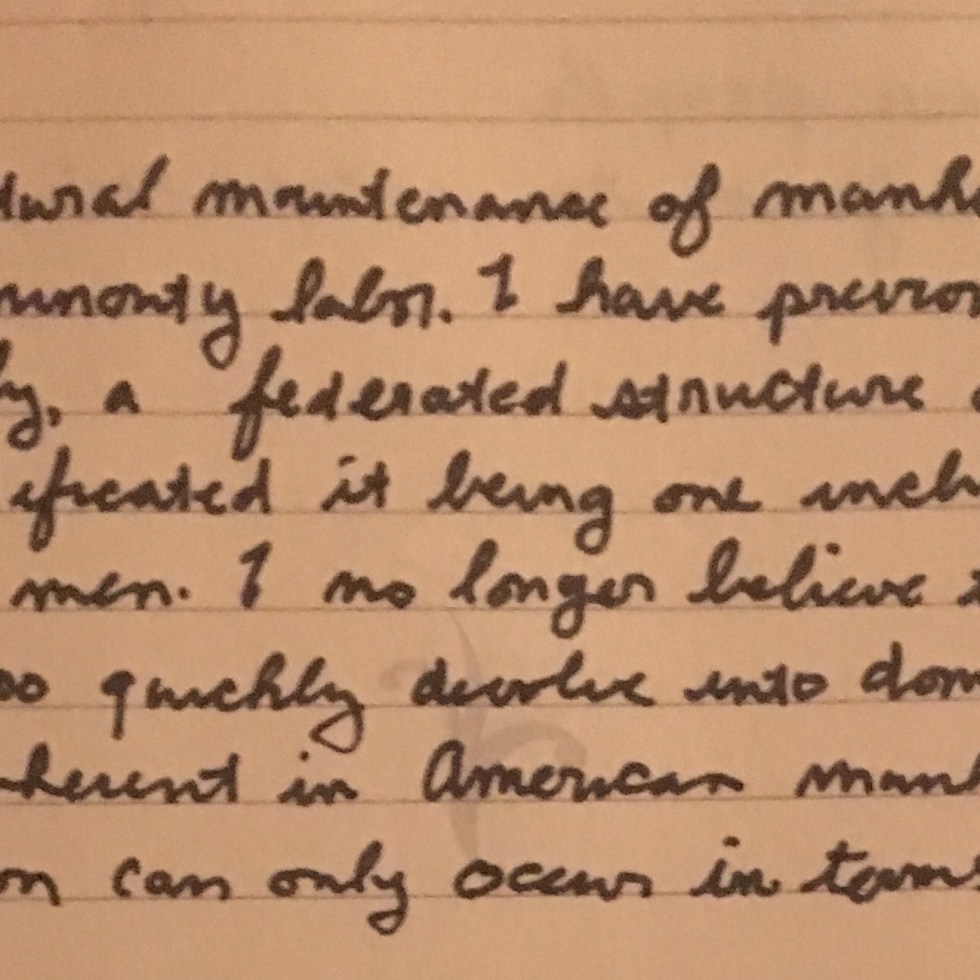 tural maintenance of manh
minority labor. I have previou
ly, a federated structure
ificated it being one inclu
men. I no longer believe
oo quickly devolve into dom
herent in American manh
on can only occur in